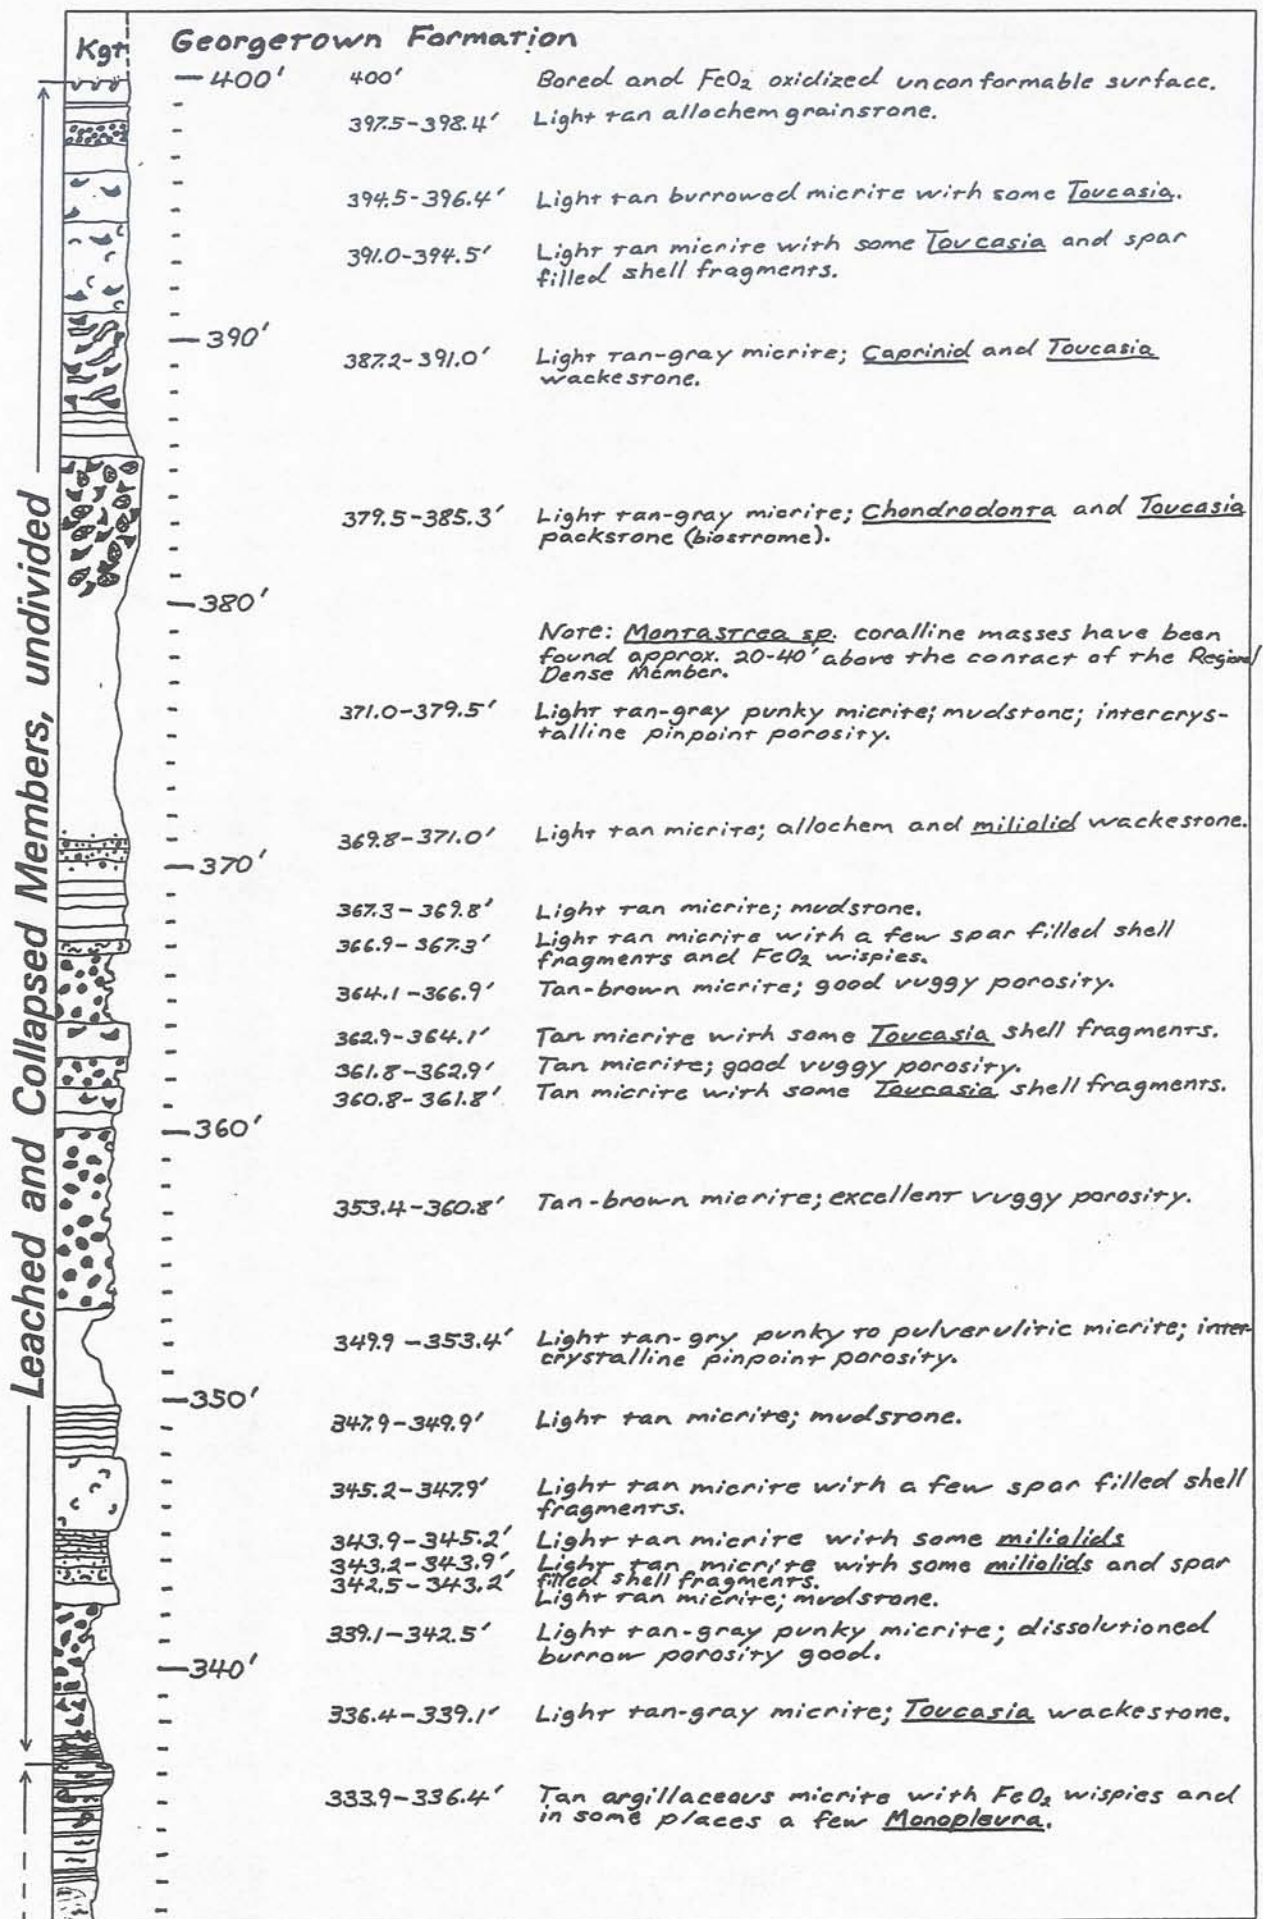 Kgt
Georgetown Formation
400' 400' Bored and FeO₂ oxidized unconformable surface.
397.5-398.4' Light tan allochem grainstone.
394.5-396.4' Light tan burrowed micrite with some Toucasia.
391.0-394.5' Light tan micrite with some Toucasia and spar
filled shell fragments.
390'
387.2-391.0' Light tan-gray micrite; Caprinid and Toucasia
wackestone.
379.5-385.3' Light tan-gray micrite; Chondrodonta and Toucasia
packstone (biostrome).
380'
Note: Montastrea sp. coralline masses have been
found approx. 20-40' above the contact of the Regional
Dense Member.
371.0-379.5' Light tan-gray punky micrite; mudstone; intercrys-
talline pinpoint porosity.
369.8-371.0' Light tan micrite; allochem and miliolid wackestone.
370'
367.3-369.8' Light tan micrite; mudstone.
366.9-367.3' Light tan micrite with a few spar filled shell
fragments and FeO₂ wispies.
364.1-366.9' Tan-brown micrite; good vuggy porosity.
362.9-364.1' Tan micrite with some Toucasia shell fragments.
361.8-362.9' Tan micrite; good vuggy porosity.
360.8-361.8' Tan micrite with some Toucasia shell fragments.
360'
353.4-360.8' Tan-brown micrite; excellent vuggy porosity.
349.9-353.4' Light tan-gry punky to pulverulitic micrite; inter-
crystalline pinpoint porosity.
350'
347.9-349.9' Light tan micrite; mudstone.
345.2-347.9' Light tan micrite with a few spar filled shell
fragments.
343.9-345.2' Light tan micrite with some miliolids
343.2-343.9' Light tan micrite with some miliolids and spar
filled shell fragments.
342.5-343.2' Light tan micrite; mudstone.
339.1-342.5' Light tan-gray punky micrite; dissolutioned
burrow porosity good.
340'
336.4-339.1' Light tan-gray micrite; Toucasia wackestone.
333.9-336.4' Tan argillaceous micrite with FeO₂ wispies and
in some places a few Monopleura.
Leached and Collapsed Members, undivided